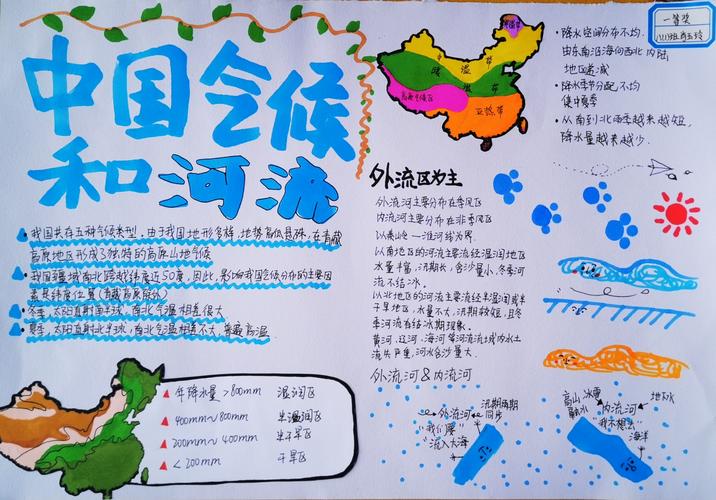 中国气候
和河流
我国共存五种气候类型，由于我国地形多样，地势高低悬殊，在青藏
高原地区形成了独特的高原山地气候
我国疆域南北跨越纬度近50度，因此，影响我国气候分布的主要因
素是纬度位置（青藏高原除外）
冬季，太阳直射南半球，南北气温相差很大
夏季，太阳直射北半球，南北气温相差不大，普遍高温
年降水量>800mm 湿润区
400mm~800mm 半湿润区
200mm~400mm 半干旱区
<200mm 干旱区
暖温带
高原气候区
亚热带
一等奖
降水空间分布不均.
由东南沿海向西北内陆
地区递减
降水季节分配不均
集中夏季
从南到北雨季越来越短,
降水量越来越少.
外流区为主
外流河主要分布在季风区
内流河主要分布在非季风区
以秦岭—淮河线为界.
以南地区的河流主要流经湿润地区
水量丰富，汛期长，含沙量小，冬季河
流不结冰.
以北地区的河流主要流经半湿润或半
干旱地区，水量不大，汛期较短，且冬
季河流有结冰期现象.
黄河，辽河，海河等河流流域内水土
流失严重，河水含沙量大.
外流河&内流河
外流河
汛期雨期
同步
"我们要"
"流入大海"
高山冰雪
融水
地下水
内流河
"我不想去"
海洋